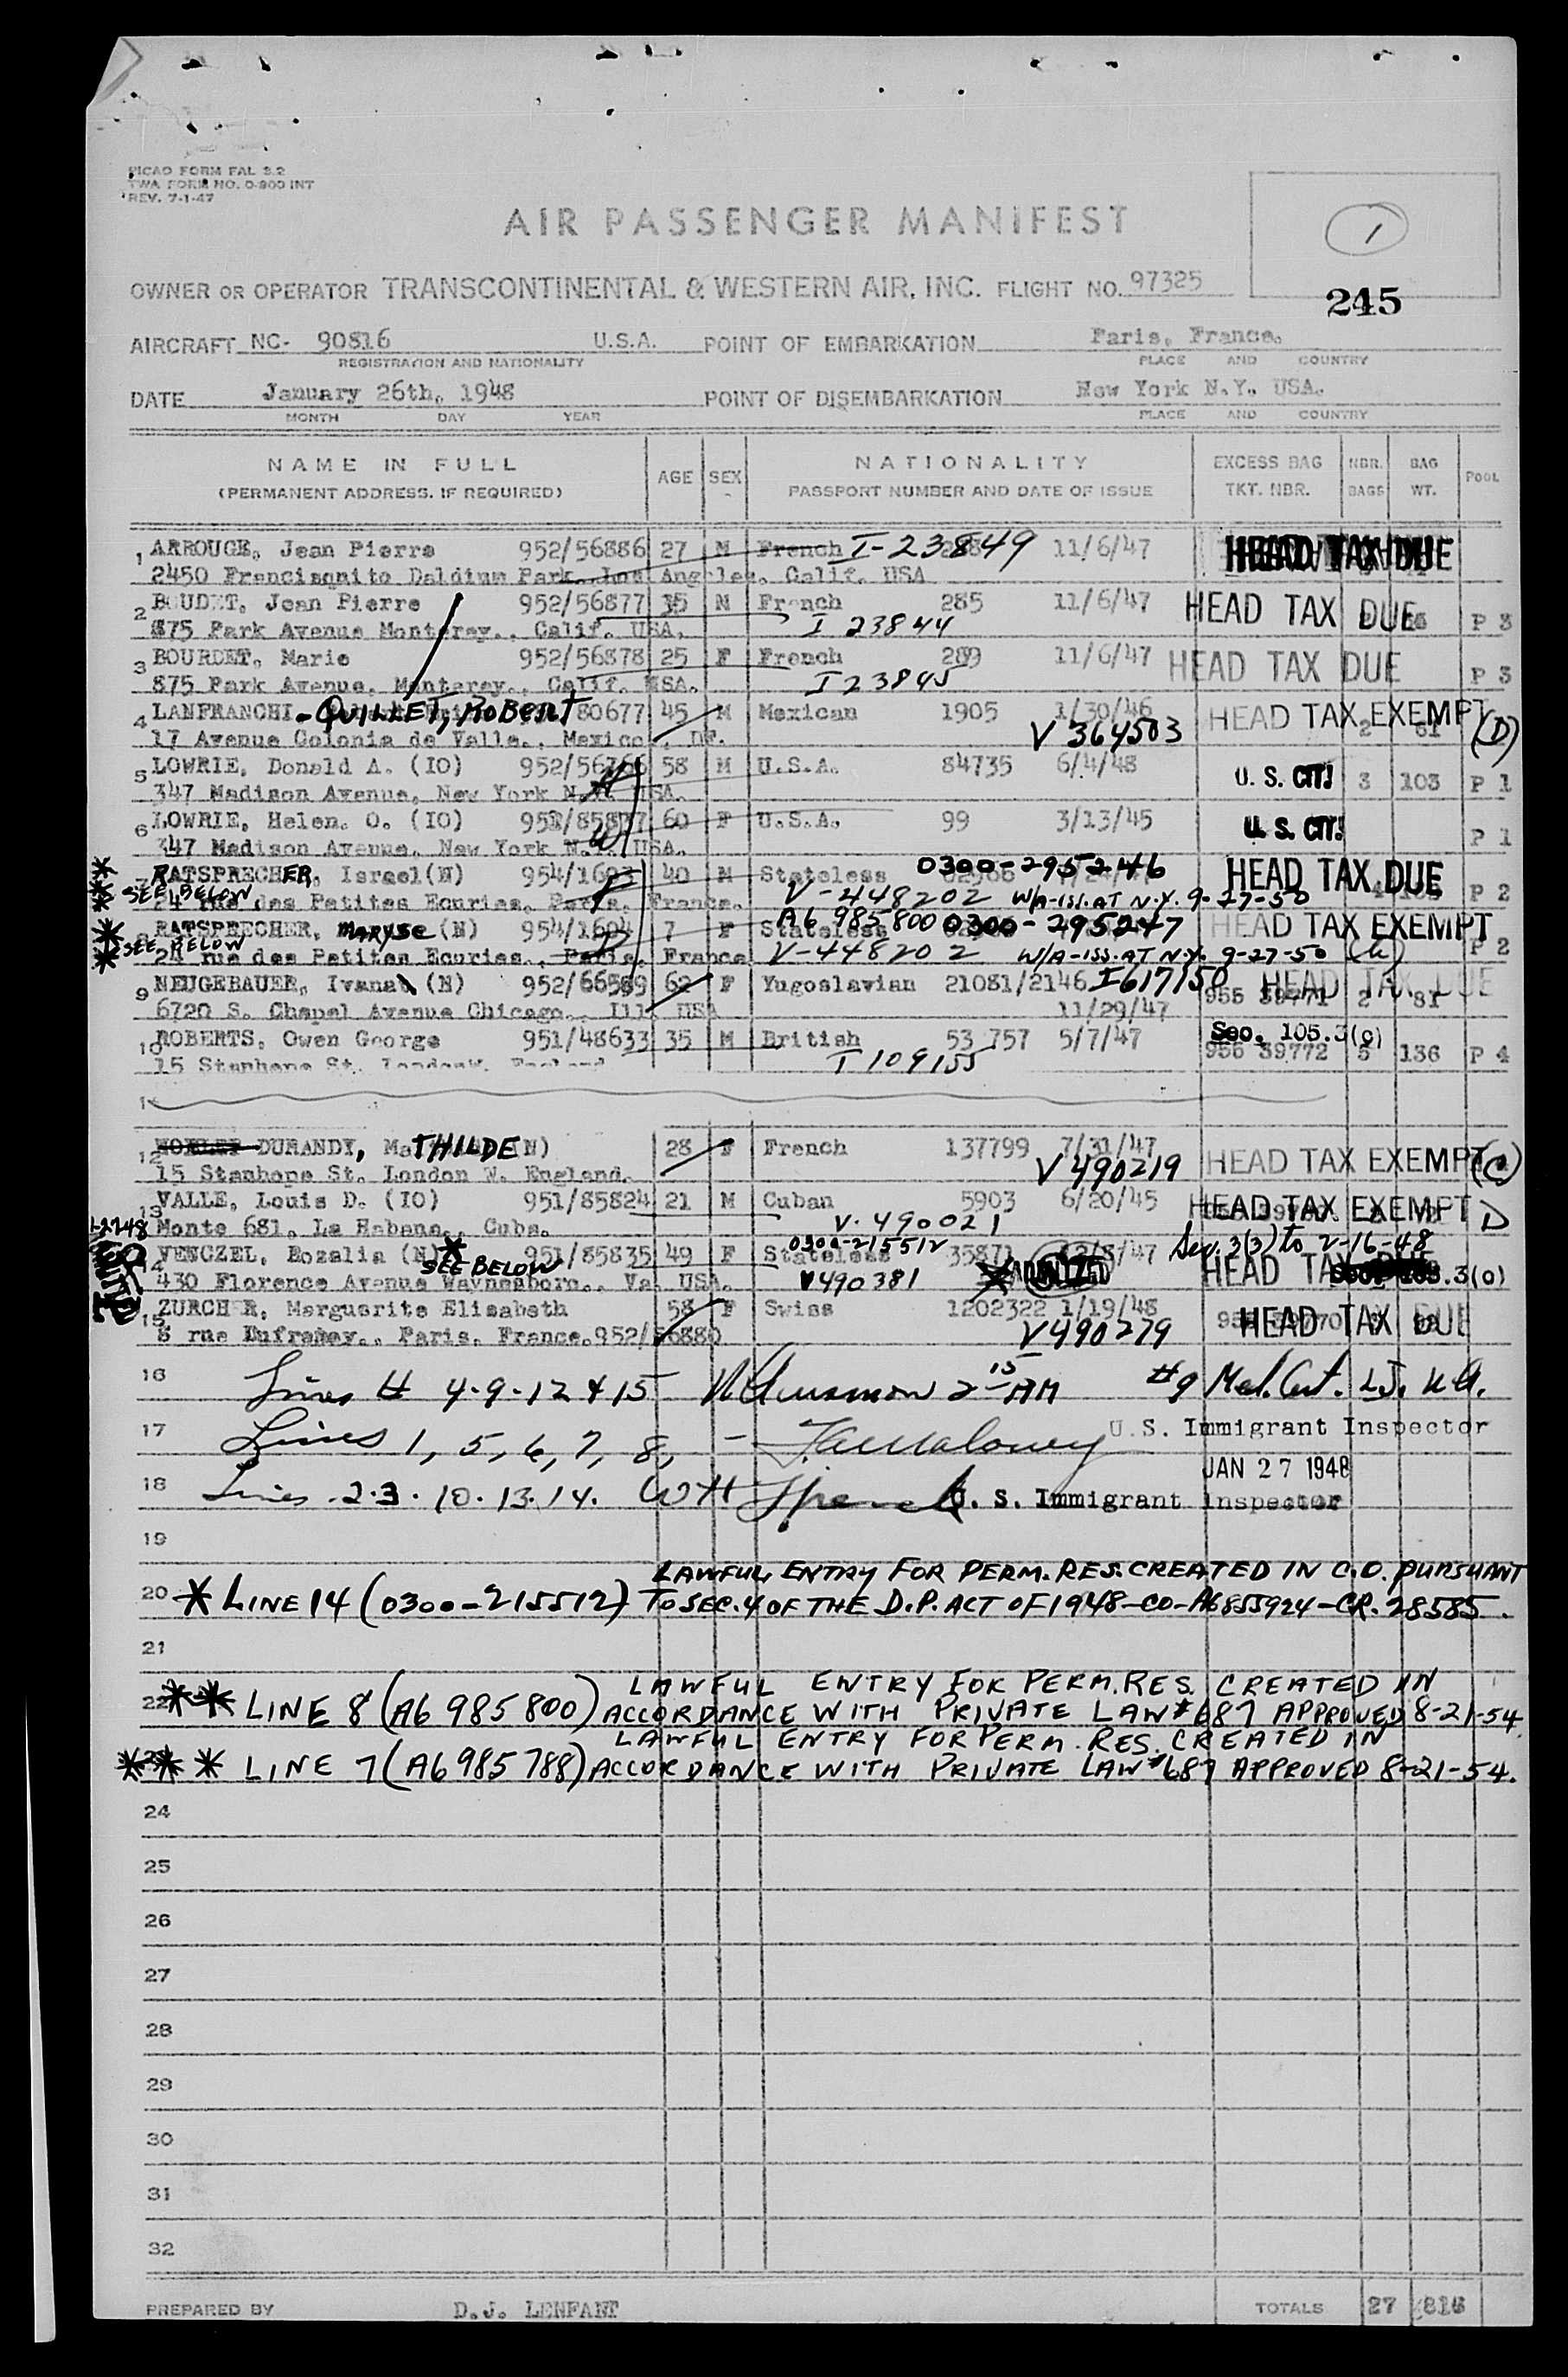 PICAO FORM FAL 3.2
TWA FORM NO. O-900 INT
REV. 7-1-47
AIR PASSENGER MANIFEST
1
OWNER OR OPERATOR TRANSCONTINENTAL & WESTERN AIR, INC. FLIGHT NO. 97325
245
AIRCRAFT NC- 90816 U.S.A. POINT OF EMBARKATION Paris, France.
REGISTRATION AND NATIONALITY PLACE AND COUNTRY
DATE January 26th, 1948 POINT OF DISEMBARKATION New York N.Y. USA.
MONTH DAY YEAR PLACE AND COUNTRY
NAME IN FULL AGE SEX NATIONALITY EXCESS BAG NBR. BAG POOL
(PERMANENT ADDRESS, IF REQUIRED) PASSPORT NUMBER AND DATE OF ISSUE TKT. NBR. BAGS WT.
1 ARROUGE, Jean Pierre 952/56886 27 M French I-23849 11/6/47 HEAD TAX DUE
2450 Park, Los Angeles, Calif. USA
2 BOUDET, Jean Pierre 952/56877 35 M French 285 11/6/47 HEAD TAX DUE
875 Park Avenue Monterey., Calif. USA. I 23844 P 3
3 BOURDET, Marie 952/56878 25 F French 289 11/6/47 HEAD TAX DUE
875 Park Avenue, Monterey., Calif. USA. I 23845 P 3
4 LANFRANCHI - QUILLET, ROBERT 80677 45 M Mexican 1905 1/30/46 HEAD TAX EXEMPT
17 Avenue Colonia de Valle., Mexico., DF. V 364503 2 61 (D)
5 LOWRIE, Donald A. (IO) 952/56766 58 M U.S.A. 84735 6/4/48 U. S. CIT!
347 Madison Avenue, New York N.Y. USA. 3 103 P 1
6 LOWRIE, Helen. O. (IO) 60 F U.S.A. 99 3/13/45 U. S. CIT!
347 Madison Avenue, New York N.Y. USA. P 1
RATSPRECHER, Israel(N) 954/1603 40 M Stateless 0300-295246 HEAD TAX DUE
SEE BELOW 24 rue des Petites Ecuries, Paris, France. V-448202 W/A-ISS. AT N.Y. 9-27-50 P 2
RATSPRECHER, MARYSE (N) 954/1604 7 F Stateless A6 985 800 0300-295247 HEAD TAX EXEMPT
SEE BELOW 24 rue des Petites Ecuries., Paris, France V-448202 W/A-ISS. AT N.Y. 9-27-50 P 2
9 NEUGEBAUER, Ivana (N) 952/66589 62 F Yugoslavian 21081/2146 I617150 HEAD TAX DUE
6720 S. Chapel Avenue Chicago., Ill. USA 11/29/47 956 39771 2 81
10 ROBERTS, Owen George 951/48633 35 M British 53 757 5/7/47 Sec. 105.3(c)
15 Stanhope St. London W. England I 109155 956 39772 5 136 P 4
12 DURANDY, MaTHILDE (N) 28 F French 137799 7/31/47 HEAD TAX EXEMPT (C)
15 Stanhope St. London W. England. V 490219
13 VALLE, Louis D. (IO) 951/85824 21 M Cuban 5903 6/20/45 HEAD TAX EXEMPT D
Monte 681, La Habana., Cuba. V. 490021
14 VENCZEL, Rozalia (N) * 951/85835 49 F Stateless 0300-215512 35871 12/8/47 Sec. 3(3) to 2-16-48
430 Florence Avenue Waynesboro., Va. USA. SEE BELOW V490381 HEAD TAX .3(c)
15 ZURCHER, Marguerite Elisabeth 58 F Swiss 1202322 1/19/48 HEAD TAX DUE
8 rue Dufrenoy., Paris, France. 952/56880 V490279
16 Lines # 4-9-12 & 15 2 15 AM #9 Med. Cert.
17 Lines 1, 5, 6, 7, 8, - U.S. Immigrant Inspector
JAN 27 1948
18 Lines 2.3. 10. 13. 14. U. S. Immigrant Inspector
19
LAWFUL ENTRY FOR PERM. RES. CREATED IN C.O. PURSUANT
20 * LINE 14 (0300-215512) TO SEC. 4 OF THE D.P. ACT OF 1948-CO-A6855924-CR. 28585.
21
LAWFUL ENTRY FOR PERM. RES. CREATED IN
22 ** LINE 8 (A6 985 800) ACCORDANCE WITH PRIVATE LAW #687 APPROVED 8-21-54.
LAWFUL ENTRY FOR PERM. RES. CREATED IN
*** LINE 7 (A6 985 788) ACCORDANCE WITH PRIVATE LAW #687 APPROVED 8-21-54.
24
25
26
27
28
29
30
31
32
PREPARED BY D.J. LENFANT TOTALS 27 816